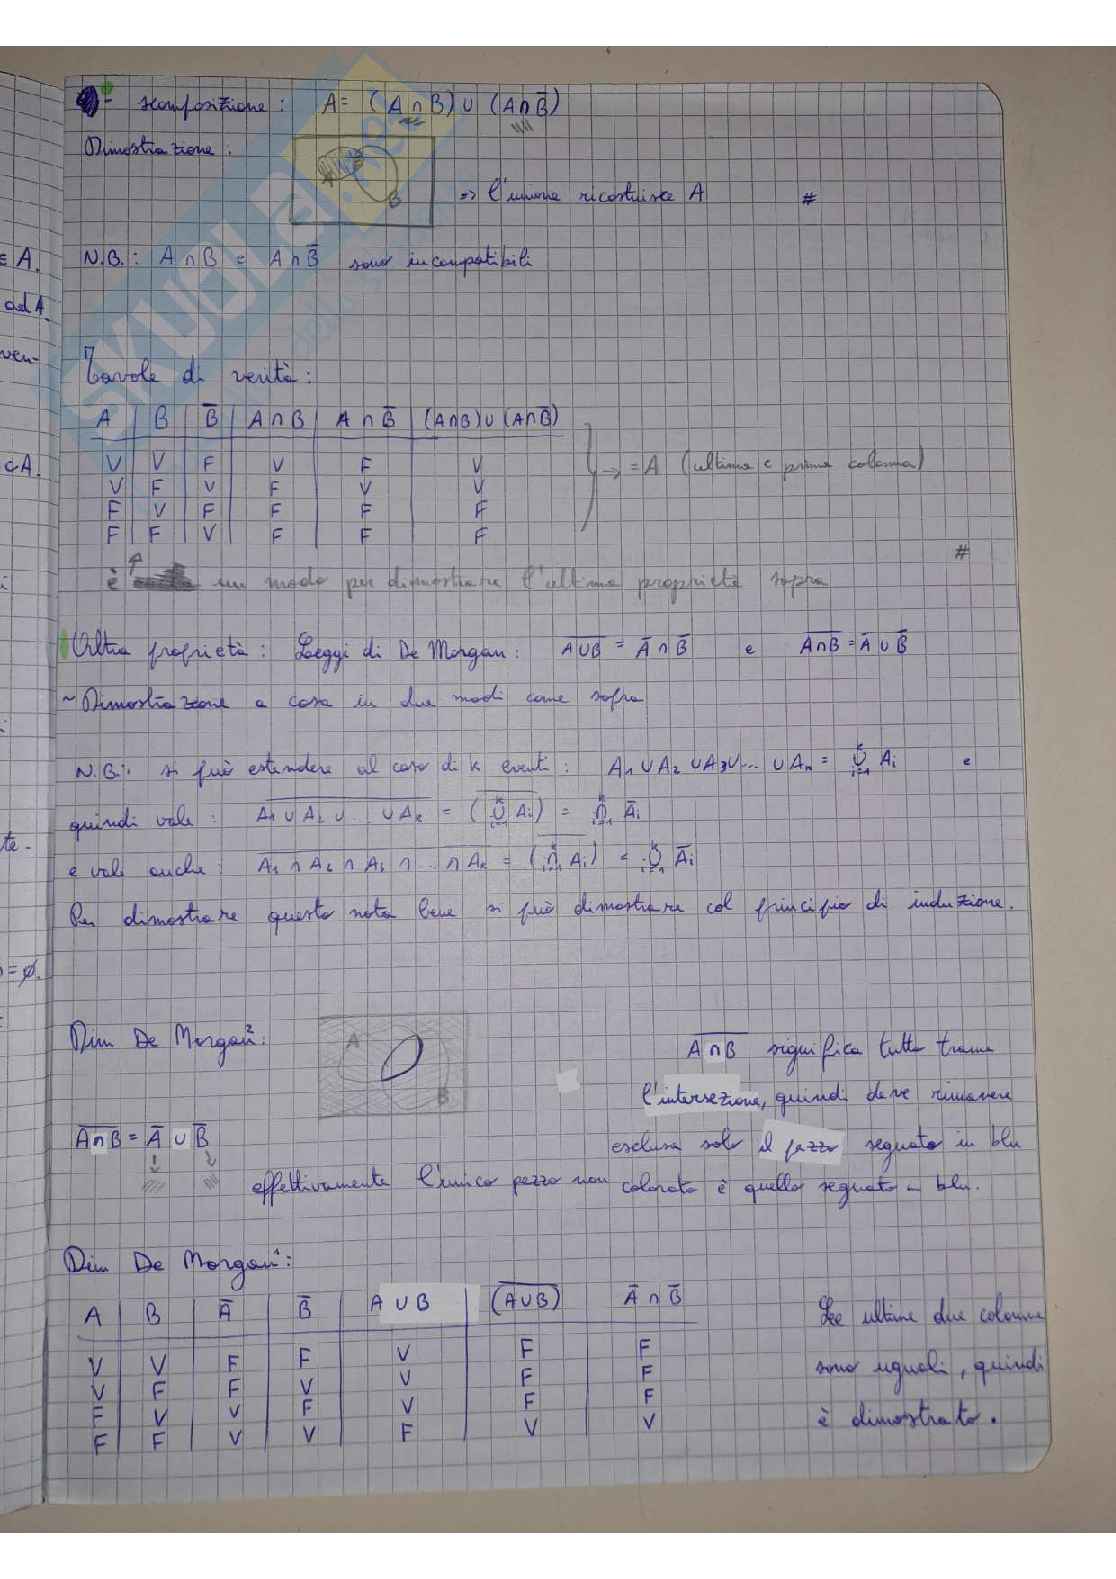 - scomposizione: A = (A∩B)∪(A∩B̅)
Dimostrazione:
A
B
=> l'unione ricostruisce A #
N.B.: A∩B e A∩B̅ sono incompatibili
Tavole di verità:
A | B | B̅ | A∩B | A∩B̅ | (A∩B)∪(A∩B̅)
V | V | F | V | F | V
V | F | V | F | V | V
F | V | F | F | F | F
F | F | V | F | F | F
→ = A (ultima e prima colonna)
è un modo per dimostrare l'ultima proprietà sopra #
Altra proprietà: Leggi di De Morgan: \overline{A∪B} = A̅∩B̅ e \overline{A∩B} = A̅∪B̅
~ Dimostrazione a casa in due modi come sopra
N.B.: si può estendere al caso di k eventi: A₁∪A₂∪A₃∪... ∪Aₙ = ∪ᵏᵢ₌₁ Aᵢ e
quindi vale: \overline{A₁∪A₂∪...∪Aₖ} = \overline{(∪ᵏᵢ₌₁ Aᵢ)} = ∩ᵏᵢ₌₁ A̅ᵢ
e vale anche: \overline{A₁∩A₂∩A₃∩...∩Aₖ} = \overline{(∩ᵏᵢ₌₁ Aᵢ)} = ∪ᵏᵢ₌₁ A̅ᵢ
Per dimostrare questo nota bene si può dimostrare col principio di induzione.
Dim De Morgan²:
A
B
\overline{A∩B} significa tutto tranne
l'intersezione, quindi deve rimanere
\overline{A∩B} = A̅∪B̅
esclusa solo il pezzo segnato in blu
effettivamente l'unico pezzo non colorato è quello segnato in blu.
Dim De Morgan¹:
A | B | A̅ | B̅ | A∪B | \overline{(A∪B)} | A̅∩B̅
V | V | F | F | V | F | F
V | F | F | V | V | F | F
F | V | V | F | V | F | F
F | F | V | V | F | V | V
Le ultime due colonne
sono uguali, quindi
è dimostrato.
∈ A.
ad A.
ven-
⊂ A.
te-
= ∅.
SKUOLA.net